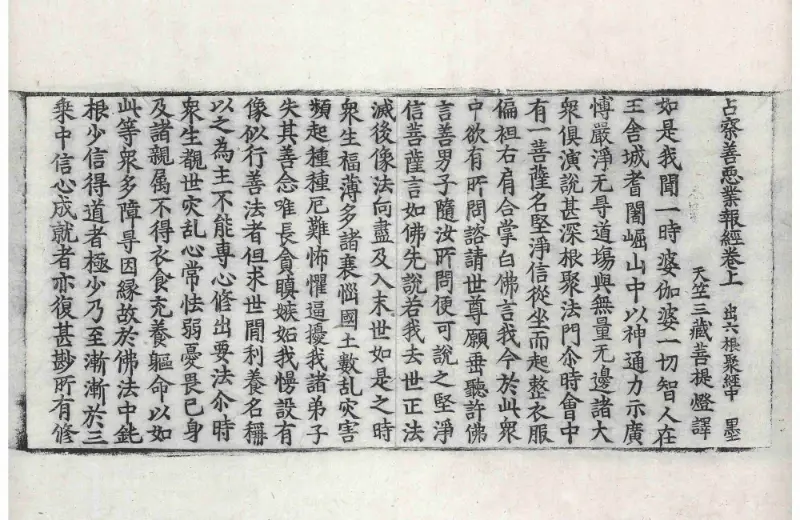 占察善惡業報經卷上 出六根聚經中 墨
天竺三藏菩提燈譯
如是我聞一時婆伽婆一切智人在
王舍城耆闍崛山中以神通力示廣
博嚴淨无㝵道場與無量无邊諸大
衆俱演說甚深根聚法門尒時會中
有一菩薩名堅淨信從坐而起整衣服
偏袒右肩合掌白佛言我今於此衆
中欲有所問諮請世尊願垂聽許佛
言善男子隨汝所問便可說之堅淨
信菩薩言如佛先說若我去世正法
滅後像法向盡及入末世如是之時
衆生福薄多諸衰惱國土數乱灾害
頻起種種厄難怖懼逼擾我諸弟子
失其善念唯長貪瞋嫉妬我慢設有
像似行善法者但求世間利養名稱
以之為主不能專心修出要法尒時
衆生覩世灾乱心常怯弱憂畏己身
及諸親屬不得衣食充養軀命以如
此等衆多障㝵因縁故於佛法中鈍
根少信得道者極少乃至漸漸於三
乗中信心成就者亦復甚尠所有修